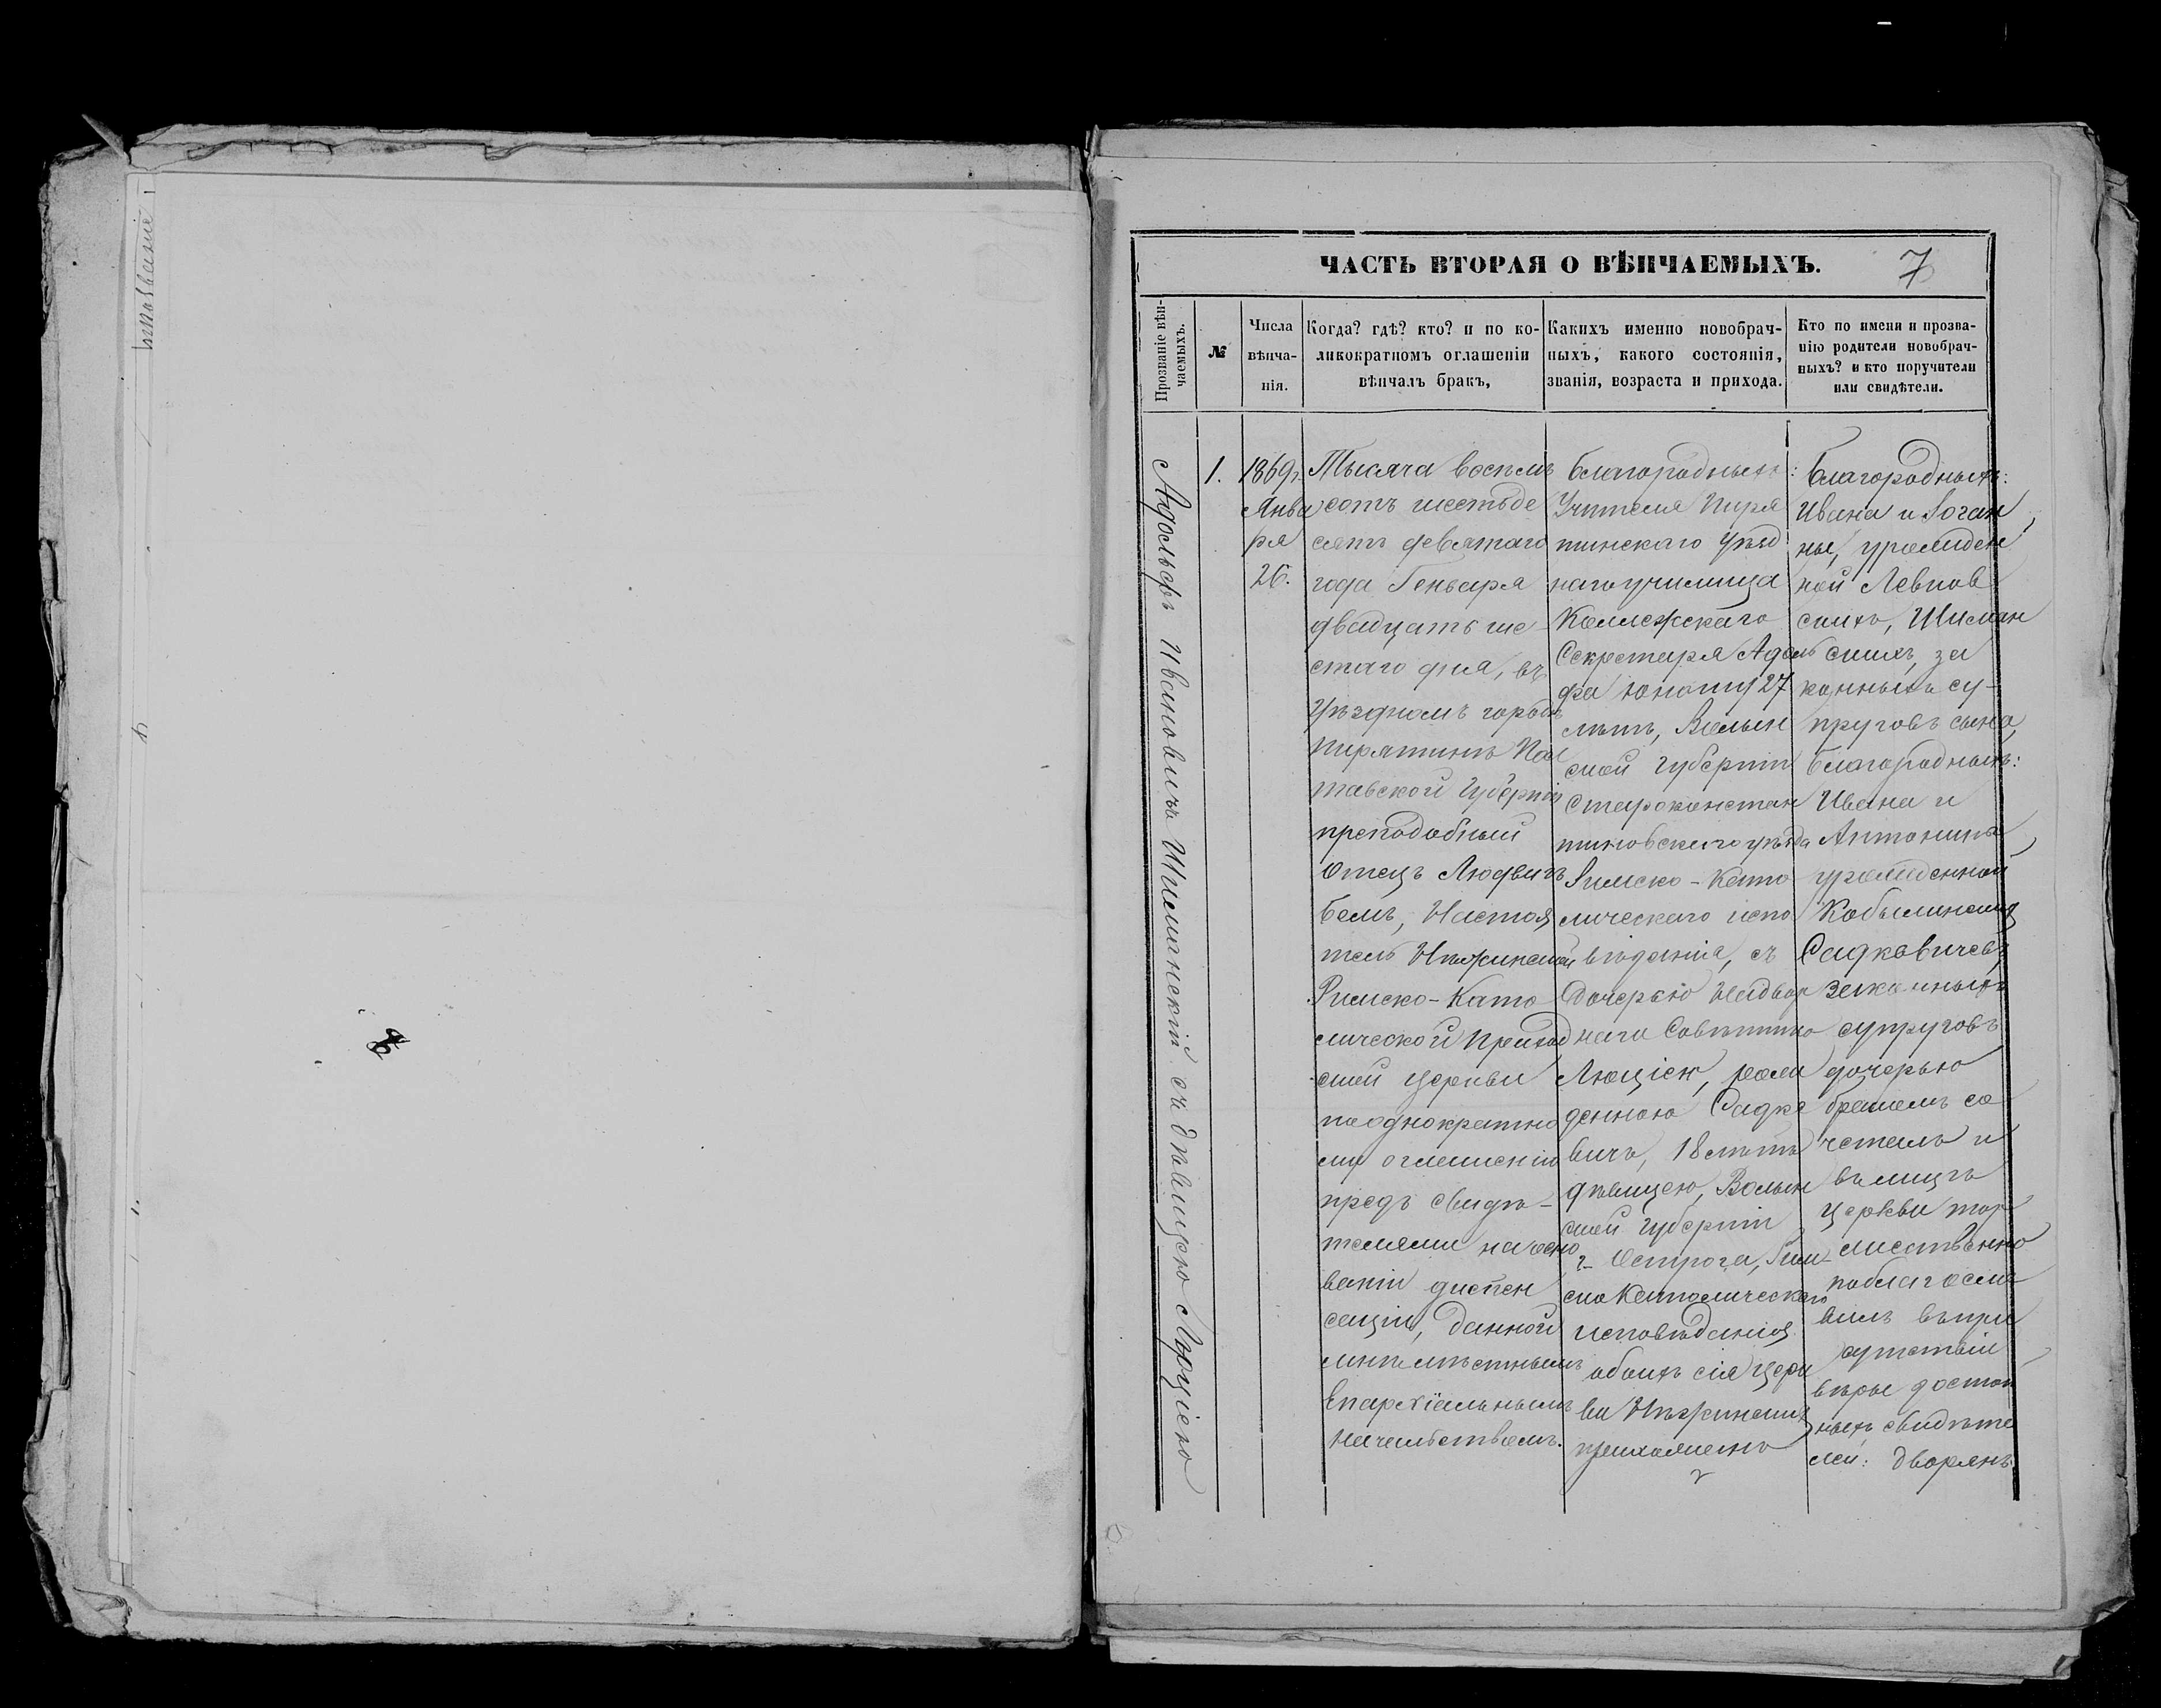 ЧАСТЬ ВТОРАЯ О ВѢНЧАЕМЫХЪ.
7
Прозваніе вѣн-
чаемыхъ.
№
Числа
вѣнча-
нія.
Когда? гдѣ? кто? и по ко-
ликократномъ оглашеніи
вѣнчалъ бракъ,
Какихъ именно новобрач-
ныхъ, какого состоянія,
званія, возраста и прихода.
Кто по имени и прозва-
нію родители новобрач-
ныхъ? и кто поручители
или свидѣтели.
Адольфъ Ивановичъ Шиманскій съ дѣвицею Люціею
1.
1869г.
Янва
ря
26.
Тысяча восемь
сотъ шестьде
сятъ девятаго
года Генваря
двадцать ше-
стаго дня, въ
Уѣздномъ городѣ
Пирятинѣ Пол
тавской Губерніи
преподобный
Отецъ Людвигъ
Бемъ, Настоя
тель Нѣжинской
Римско-Като
лической Приход
ской церкви
по однократно
му оглашенію
предъ свидѣ-
телями на осно
ваніи диспен
саціи, данной
мнѣ мѣстнымъ
Епархіальнымъ
начальствомъ.
Благородныхъ:
Учителя Пиря
тинскаго Уѣзд
наго училища
Коллежскаго
Секретаря Адоль
фа юношу 27
лѣтъ, Волын
ской Губерніи
Староконстан
тиновскаго уѣзда
Римско-Като
лическаго испо
вѣданія, съ
Дочерью Надвор
наго Совѣтника
Люціею, рож
денною Садко
вичъ, 18 лѣтъ
дѣвицею, Волын
ской Губерніи
г. Острога, Рим
ско Католическаго
исповѣданія
обоихъ сія церк
ви Нѣжинской
прихожанъ
Благородныхъ:
Ивана и Іоган
ны, урожден
ной Левков
скихъ, Шиман
скихъ, за
конныхъ су-
пруговъ сына,
благородныхъ:
Ивана и
Антонины
урожденной
Кобылинской
Садковичевъ,
законныхъ
супруговъ
дочерью
бракомъ со
четалъ и
въ лицѣ
церкви тор
жественно
поблагосло
вилъ въ при
сутствіи
вѣры достой
ныхъ свидѣте
лей: Дворянъ